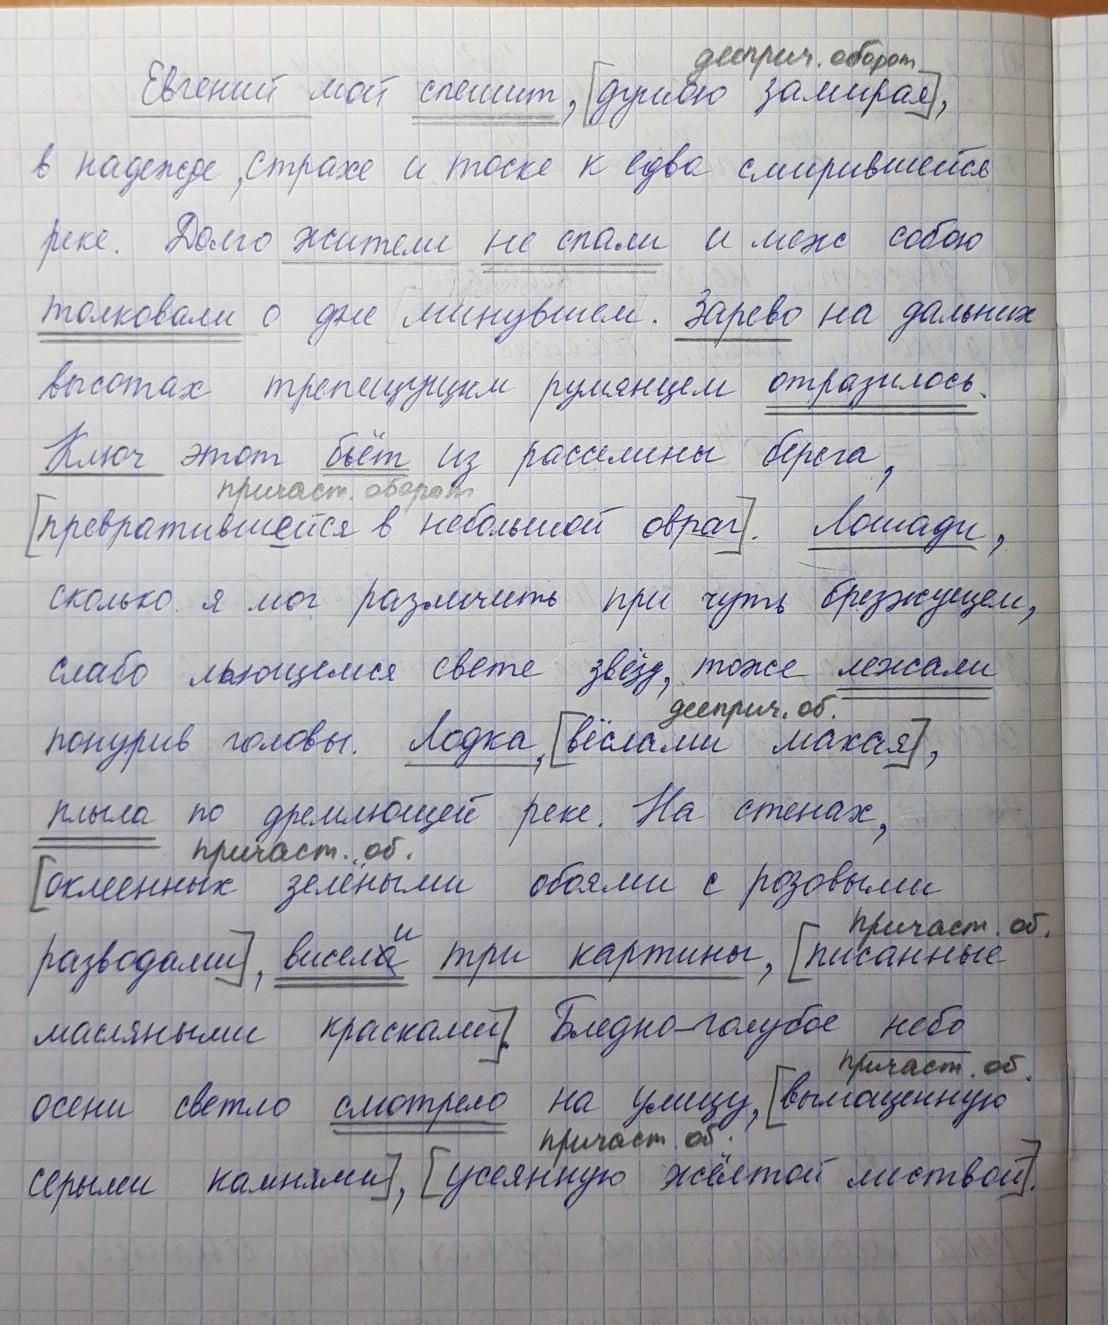 дееприч. оборот
Евгений мой спешит, [душою замирая],
в надежде, страхе и тоске к едва смирившейся
реке. Долго жители не спали и меж собою
толковали о дне минувшем. Зарево на дальних
высотах трепещущим румянцем отразилось.
Ключ этот бьёт из расселины берега,
причаст. оборот
[превратившейся в небольшой овраг]. Лошади,
сколько я мог различить при чуть брезжущем,
слабо льющемся свете звёзд, тоже лежали
дееприч. об.
понурив головы. Лодка, [вёслами махая],
плыла по дремлющей реке. На стенах,
причаст. об.
[оклеенных зелёными обоями с розовыми
причаст. об.
разводами], висели три картины, [писанные
масляными красками]. Бледно-голубое небо
причаст. об.
осени светло смотрело на улицу, [вымощенную
причаст. об.
серыми камнями], [усеянную жёлтой листвой].